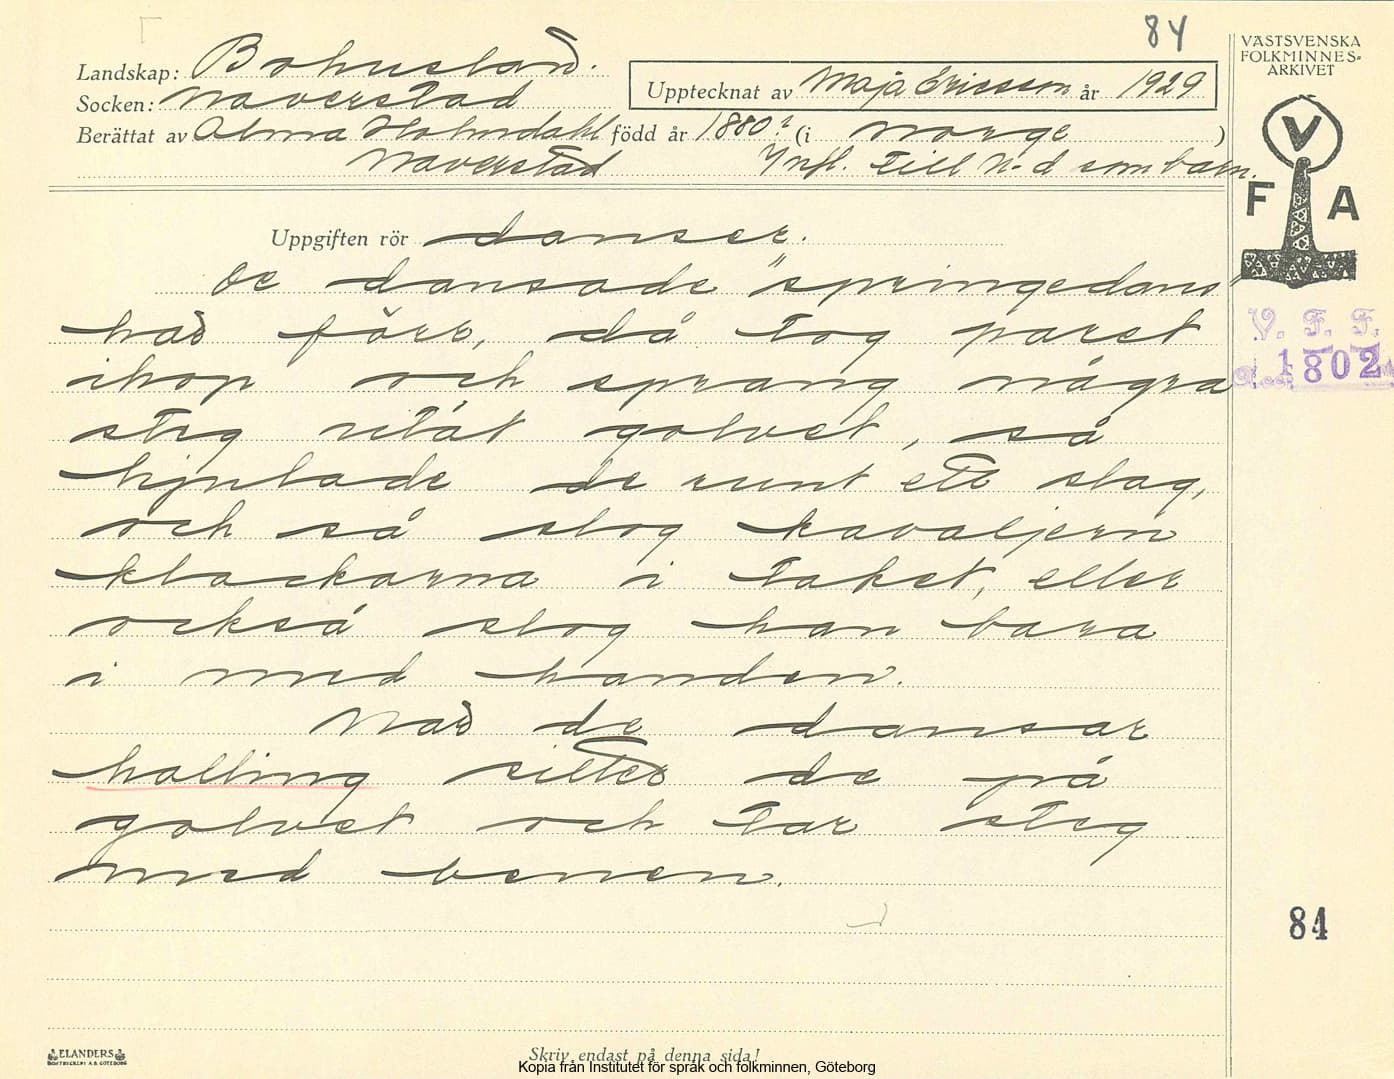 84
VÄSTSVENSKA
FOLKMINNES-
ARKIVET
Landskap: Bohuslän.
Socken: Naverstad
Upptecknat av Maja Ericsson år 1929
Berättat av Alma Holmdahl född år 1880? (i Norge )
Naverstad Infl. till N-d som barn.
V
F A
Uppgiften rör danser.
De dansade "springedans"
här förr, då tog paret
ihop och sprang några
steg utåt golvet, så
hjulade de runt ett slag,
och så slog kavaljern
klackarna i taket, eller
också slog han bara
i med handen.
När de dansar
halling sitter de på
golvet och tar steg
med benen.
V. F. F.
1802
84
ELANDERS
BOKTRYCKERI A.B. GÖTEBORG
Skriv endast på denna sida!
Kopia från Institutet för språk och folkminnen, Göteborg